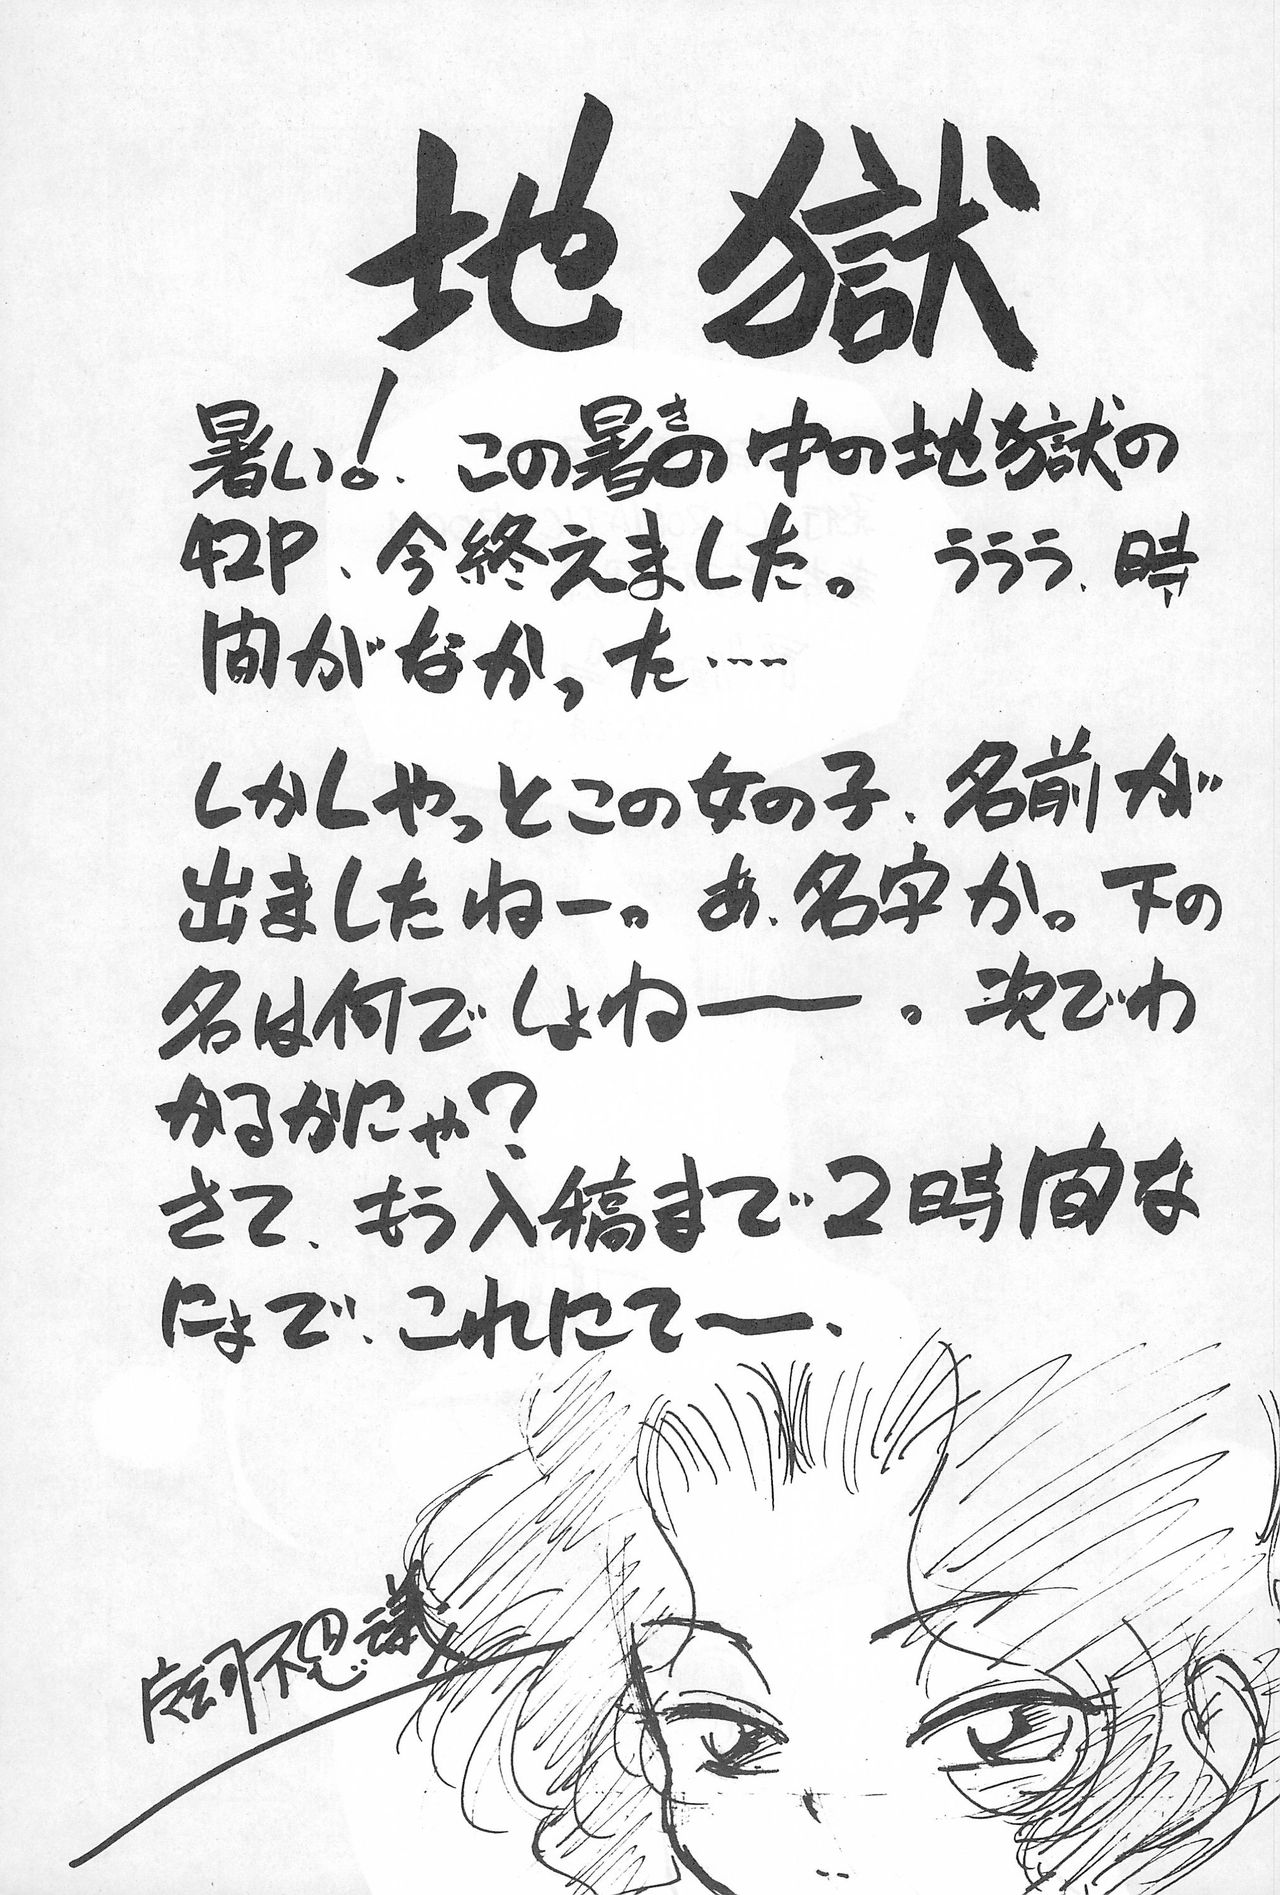 地獄
暑い!、この暑さの中の地獄の
42P、今終えました。ううう、時
間がなかった……
しかしやっとこの女の子、名前が
出ましたねー。あ、名字か。下の
名は何でしょねーー。次でわ
かるかにゃ?
さて、もう入稿まで2時間な
にょで、これにてー、
不思議